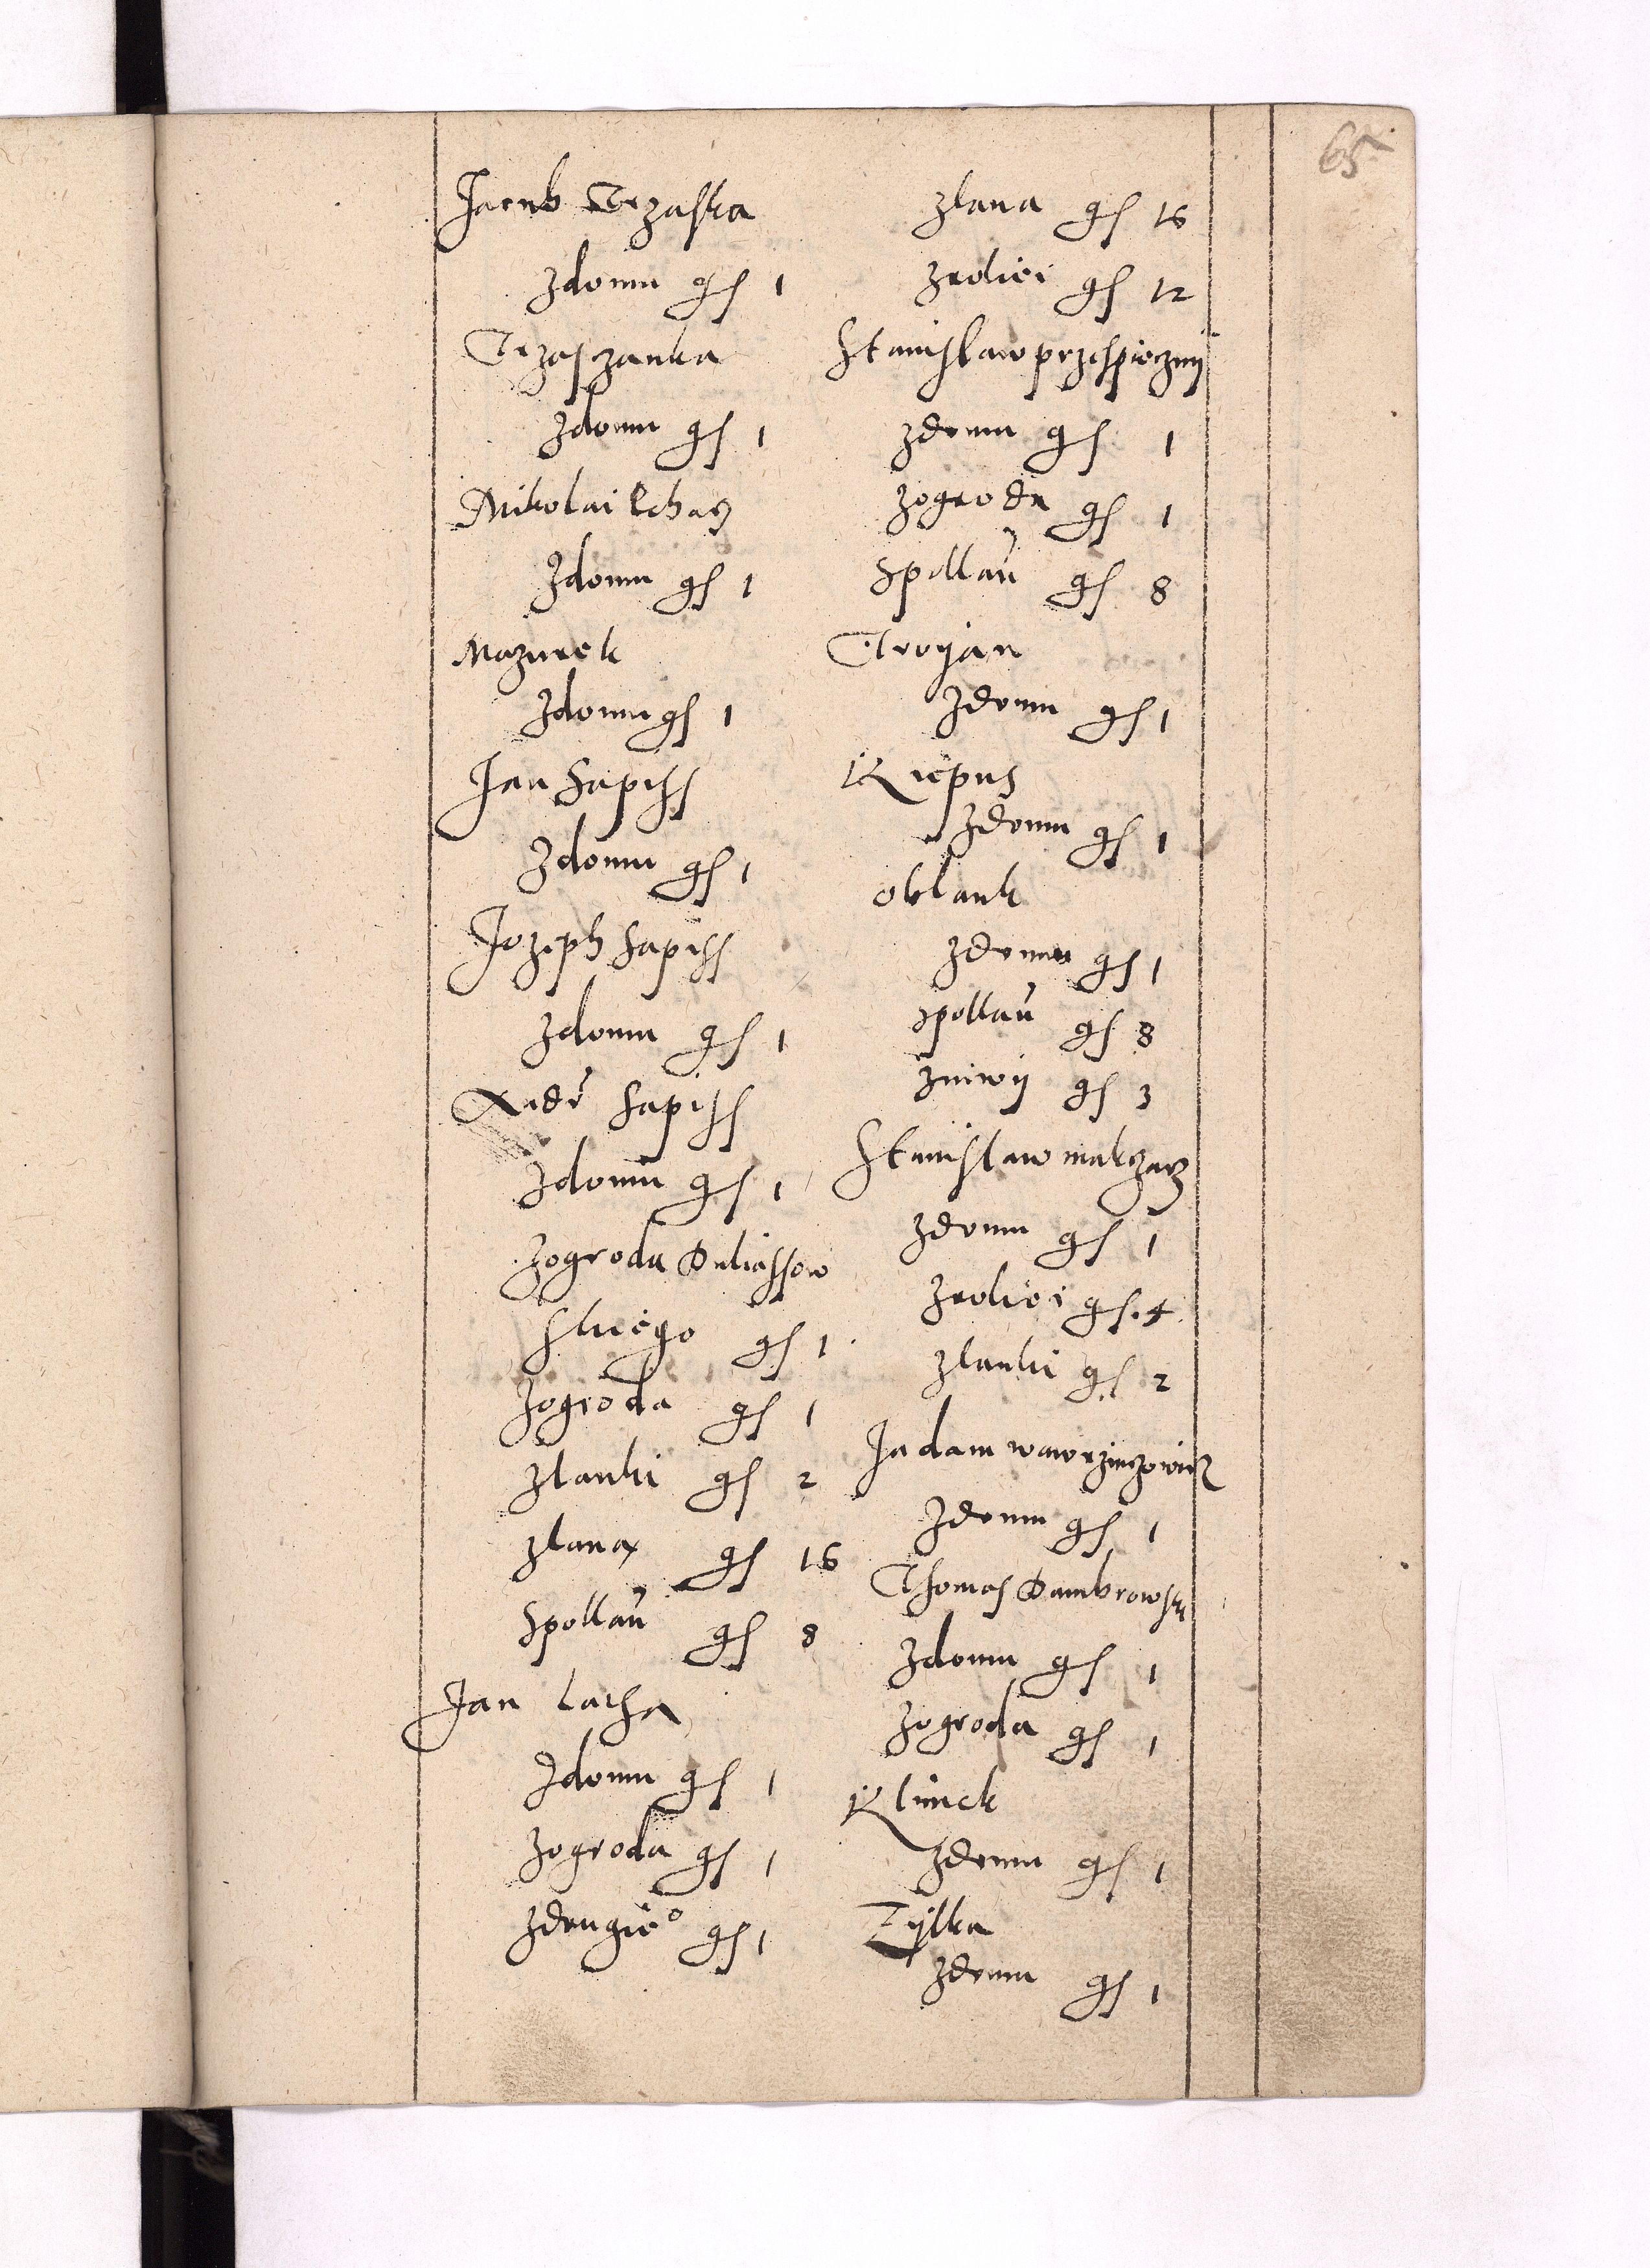 65
Jacub Trzaska
zdomu gs 1
Trzasczanka
zdomu gs 1
Mikolai
zdomu gs 1
Mazurek
zdomu gs 1
Jan Sapiss
zdomu gs 1
Jozeph Sapiss
zdomu gs 1
Sapiss
zdomu gs 1
zogroda
gs 1
zogroda gs 1
zlanki gs 2
zlana gs 16
spollan gs 8
Jan Lacha
zdomu gs 1
zogroda gs 1
zdrugie° gs 1
zlana gs 16
zroliei gs 12
Stanislaw przespieczny
zdomu gs 1
zogroda gs 1
spollan gs 8
Troyan
zdomu gs 1
Kiepus
zdomu gs 1
oblank
zdomu gs 1
spollan gs 8
zniwy gs 3
Stanislaw makzarz
zdomu gs 1
zroliei gs. 4
zlanki gs 2
Jadam wawrzinczowicz
zdomu gs 1
Thomas Dambrowski
zdomu gs 1
zogroda gs 1
Klimek
zdomu gs 1
Zylka
zdomu gs 1